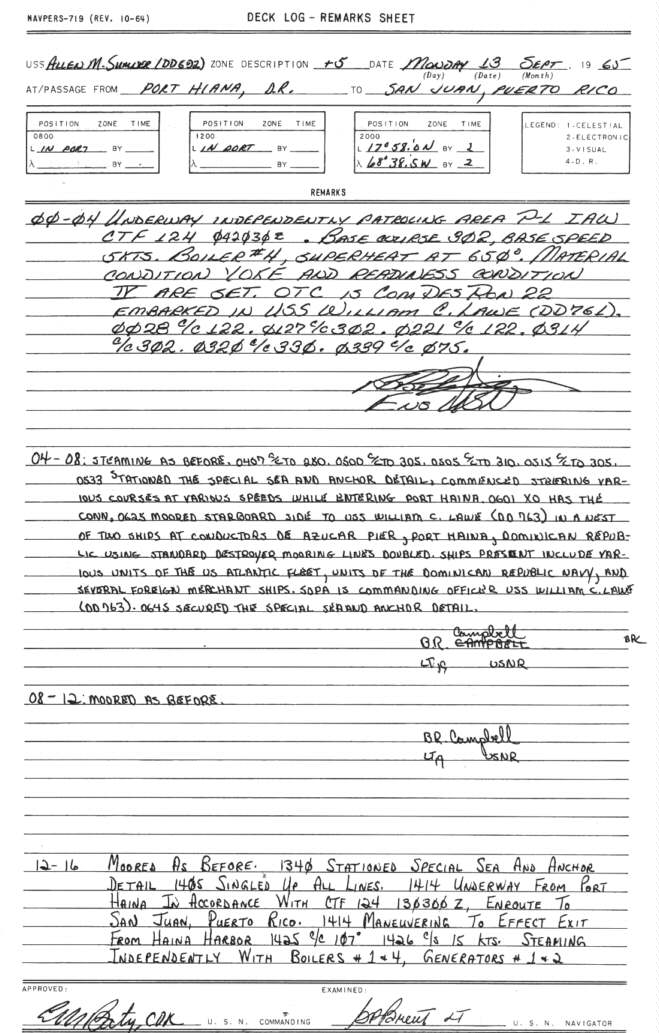 NAVPERS-719 (REV. 10-64) DECK LOG – REMARKS SHEET
USS ALLEN M. SUMNER (DD692) ZONE DESCRIPTION +5 DATE MONDAY 13 SEPT. 19 65
(Day) (Date) (Month)
AT/PASSAGE FROM PORT HIANA, D.R. TO SAN JUAN, PUERTO RICO
POSITION ZONE TIME POSITION ZONE TIME POSITION ZONE TIME LEGEND: 1-CELESTIAL
0800 1200 2000 2-ELECTRONIC
L IN PORT BY L IN PORT BY L 17° 58.'0N BY 2 3-VISUAL
λ BY λ BY λ 68° 38.'5W BY 2 4-D. R.
REMARKS
00-04 UNDERWAY INDEPENDENTLY PATROLING AREA P-1 IAW
CTF 124 042030Z. BASE COURSE 302, BASE SPEED
5KTS. BOILER #4, SUPERHEAT AT 650°. MATERIAL
CONDITION YOKE AND READINESS CONDITION
IV ARE SET. OTC IS COMDESRON 22
EMBARKED IN USS WILLIAM C. LAWE (DD761).
0028 c/c 122. 0127 c/c 302. 0221 c/c 122. 0314
c/c 302. 0320 c/c 330. 0339 c/c 075.
ENS USN
04-08: STEAMING AS BEFORE. 0407 c/c TO 280. 0500 c/c TO 305. 0505 c/c TO 310. 0515 c/c TO 305.
0533 STATIONED THE SPECIAL SEA AND ANCHOR DETAIL, COMMENCED STEERING VAR-
IOUS COURSES AT VARIOUS SPEEDS WHILE ENTERING PORT HAINA. 0601 XO HAS THE
CONN. 0625 MOORED STARBOARD SIDE TO USS WILLIAM C. LAWE (DD 763) IN A NEST
OF TWO SHIPS AT CONDUCTORS DE AZUCAR PIER, PORT HAINA, DOMINICAN REPUB-
LIC USING STANDARD DESTROYER MOORING LINES DOUBLED. SHIPS PRESENT INCLUDE VAR-
IOUS UNITS OF THE US ATLANTIC FLEET, UNITS OF THE DOMINICAN REPUBLIC NAVY, AND
SEVERAL FOREIGN MERCHANT SHIPS. SOPA IS COMMANDING OFFICER USS WILLIAM C. LAWE
(DD 763). 0645 SECURED THE SPECIAL SEA AND ANCHOR DETAIL.
Campbell
BR CAMPBELL BRC
LTJG USNR
08-12: MOORED AS BEFORE.
BR. Campbell
LTJG USNR
12-16 MOORED AS BEFORE. 1340 STATIONED SPECIAL SEA AND ANCHOR
DETAIL 1405 SINGLED UP ALL LINES. 1414 UNDERWAY FROM PORT
HAINA IN ACCORDANCE WITH CTF 124 130300 Z, ENROUTE TO
SAN JUAN, PUERTO RICO. 1414 MANEUVERING TO EFFECT EXIT
FROM HAINA HARBOR 1425 c/c 107° 1426 c/s 15 KTS. STEAMING
INDEPENDENTLY WITH BOILERS # 1 & 4, GENERATORS # 1 & 2
APPROVED: EXAMINED:
CDR U. S. N. COMMANDING LT U. S. N. NAVIGATOR